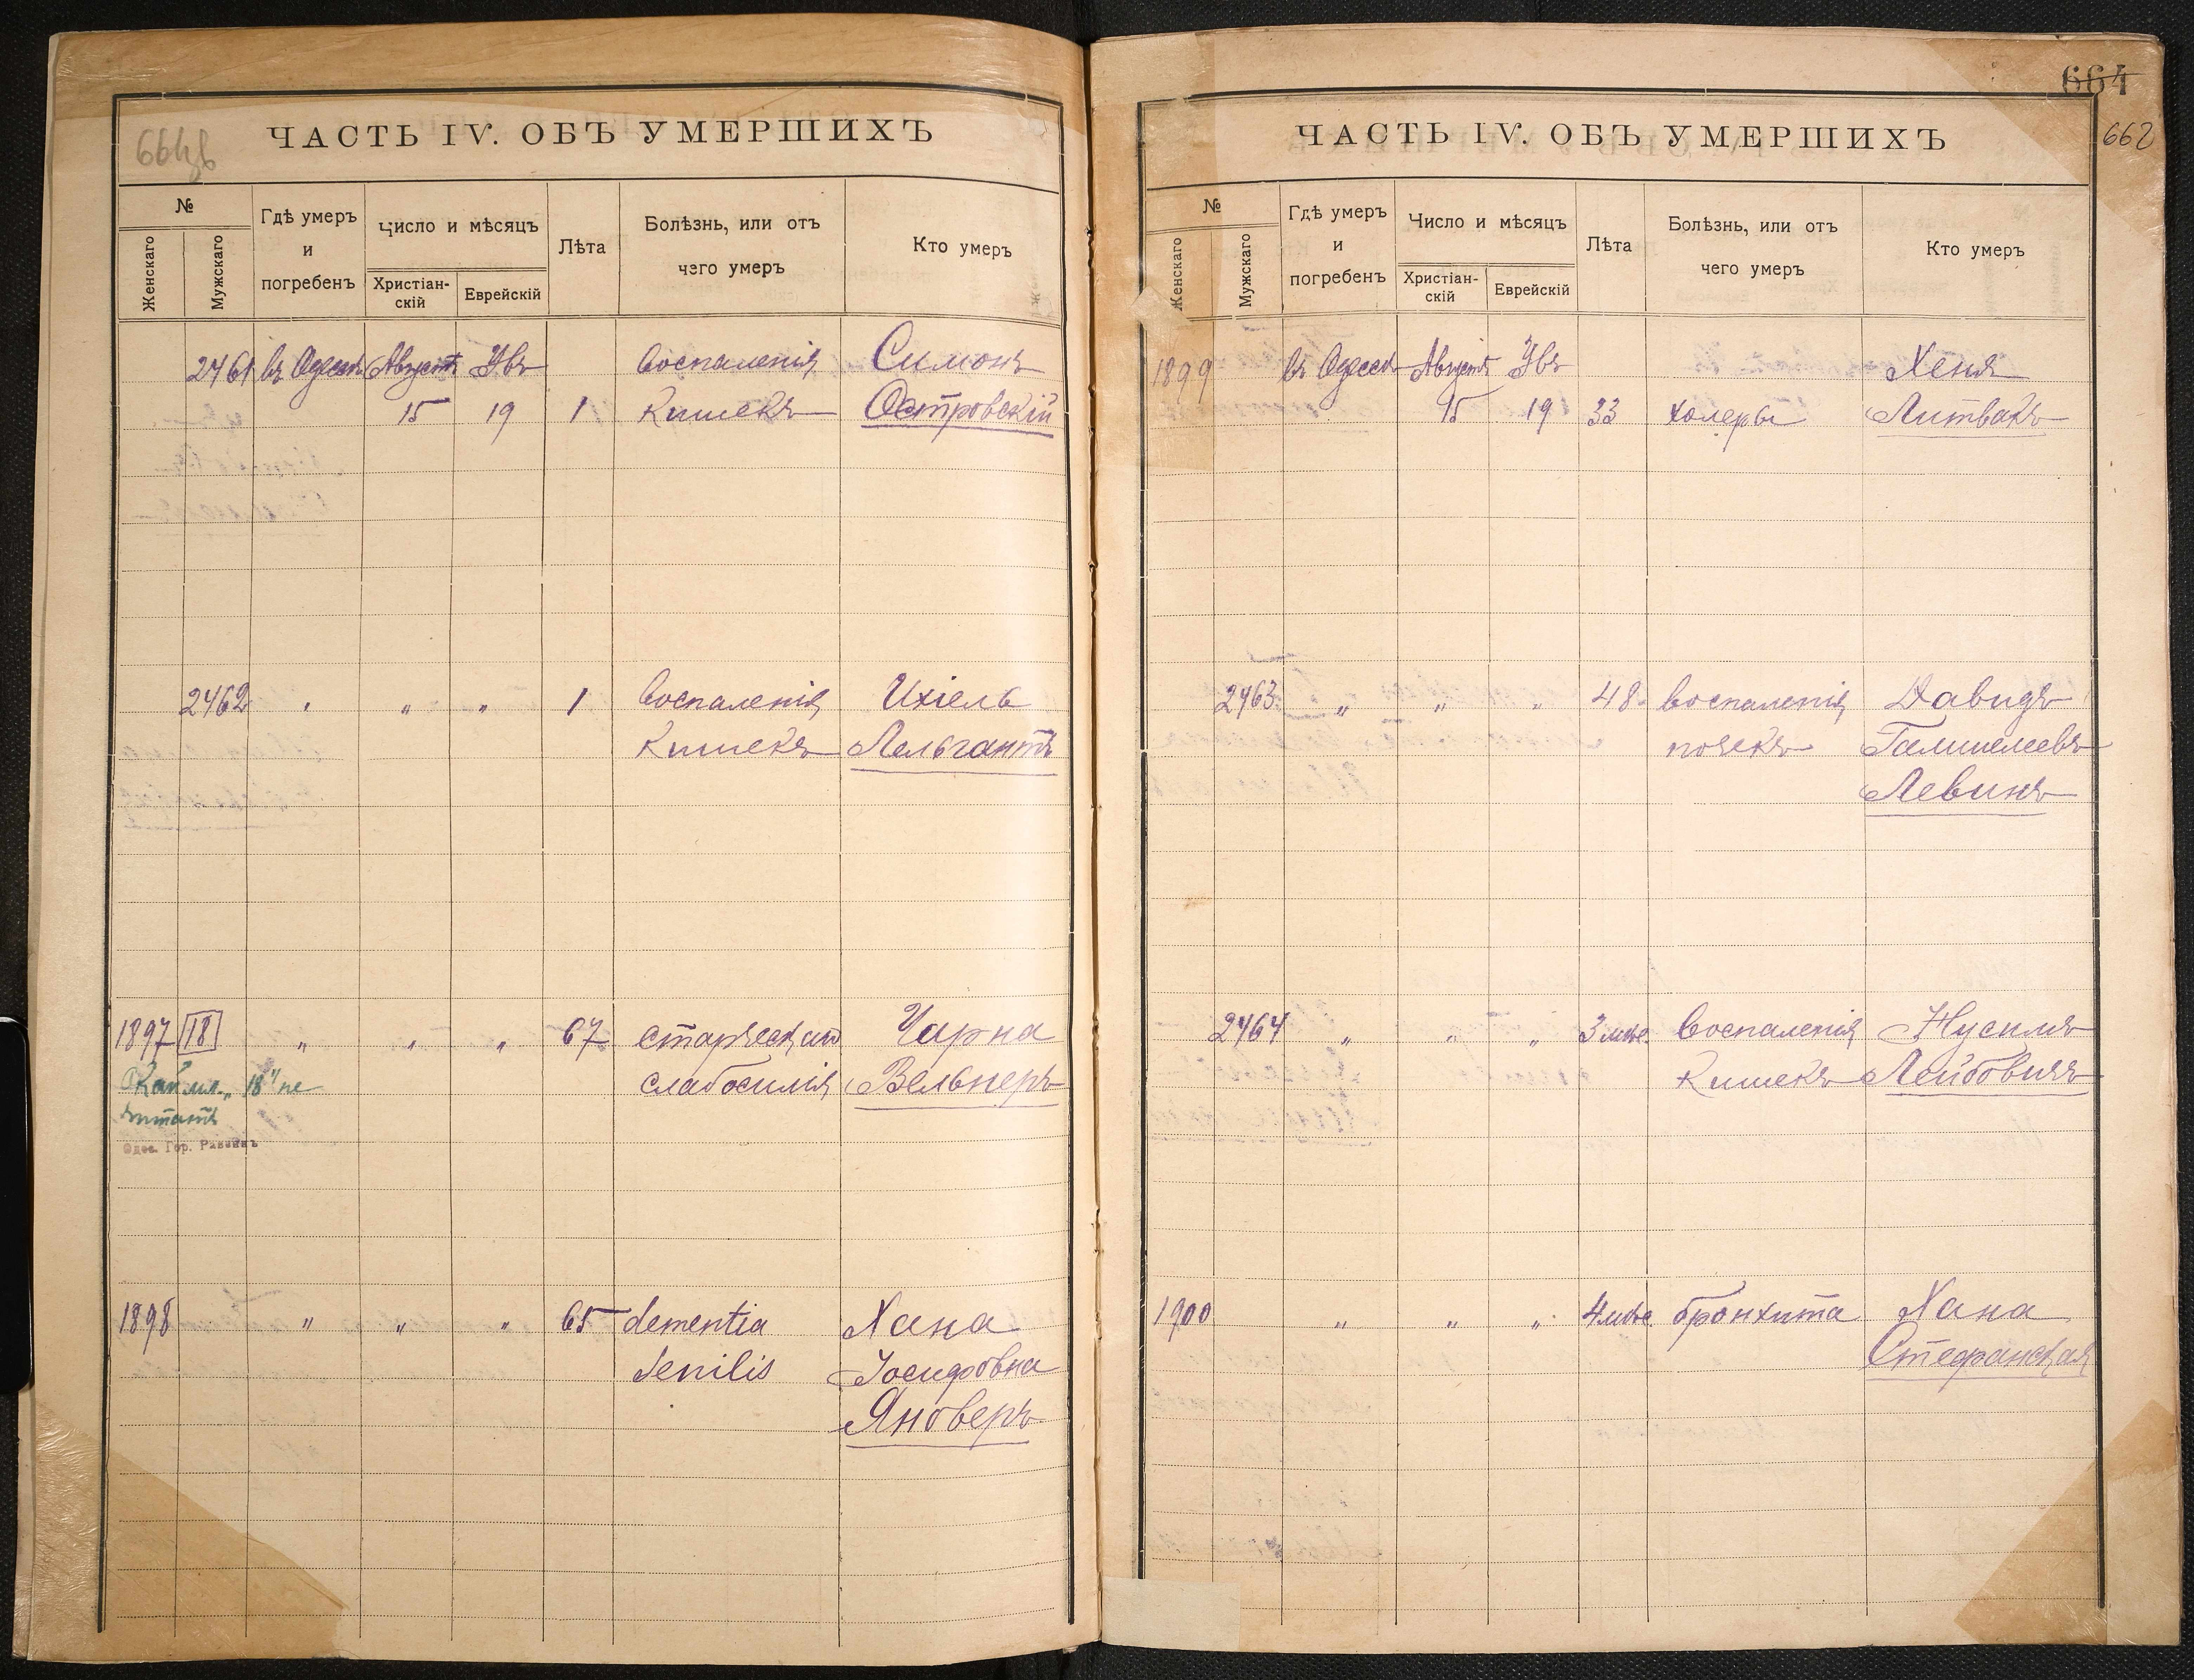 ЧАСТЬ IV. ОБЪ УМЕРШИХЪ
№
Женскаго
Мужскаго
Гдѣ умеръ
и
погребенъ
Число и мѣсяцъ
Христіан-
скій
Еврейскій
Лѣта
Болѣзнь, или отъ
чего умеръ
Кто умеръ
2461 въ Одессѣ Августъ Увъ воспаленія Симонъ
15 19 1 кишекъ Островскій
2462 " " " 1 воспаленія Ихіель
кишекъ Лельгантъ
1897 18 " " " 67 старческаго Чарна
слабосилія Вельнеръ
18"не
читать
Одес. Гор. Раввинъ
1898 " " " 65 dementia Хана
senilis Іосифовна
Яноверъ
664
662
ЧАСТЬ IV. ОБЪ УМЕРШИХЪ
№
Женскаго
Мужскаго
Гдѣ умеръ
и
погребенъ
Число и мѣсяцъ
Христіан-
скій
Еврейскій
Лѣта
Болѣзнь, или отъ
чего умеръ
Кто умеръ
1899 въ Одессѣ Августъ Увъ Хеня
15 19 33 холеры Литвакъ
2463 " " " 48 воспаленія Давидъ
почекъ
Левинъ
2464 " " " 3 мѣс. воспаленія Нусимъ
кишекъ Лейбовичъ
1900 " " " 4 мѣс. бронхита Хана
Стефанская